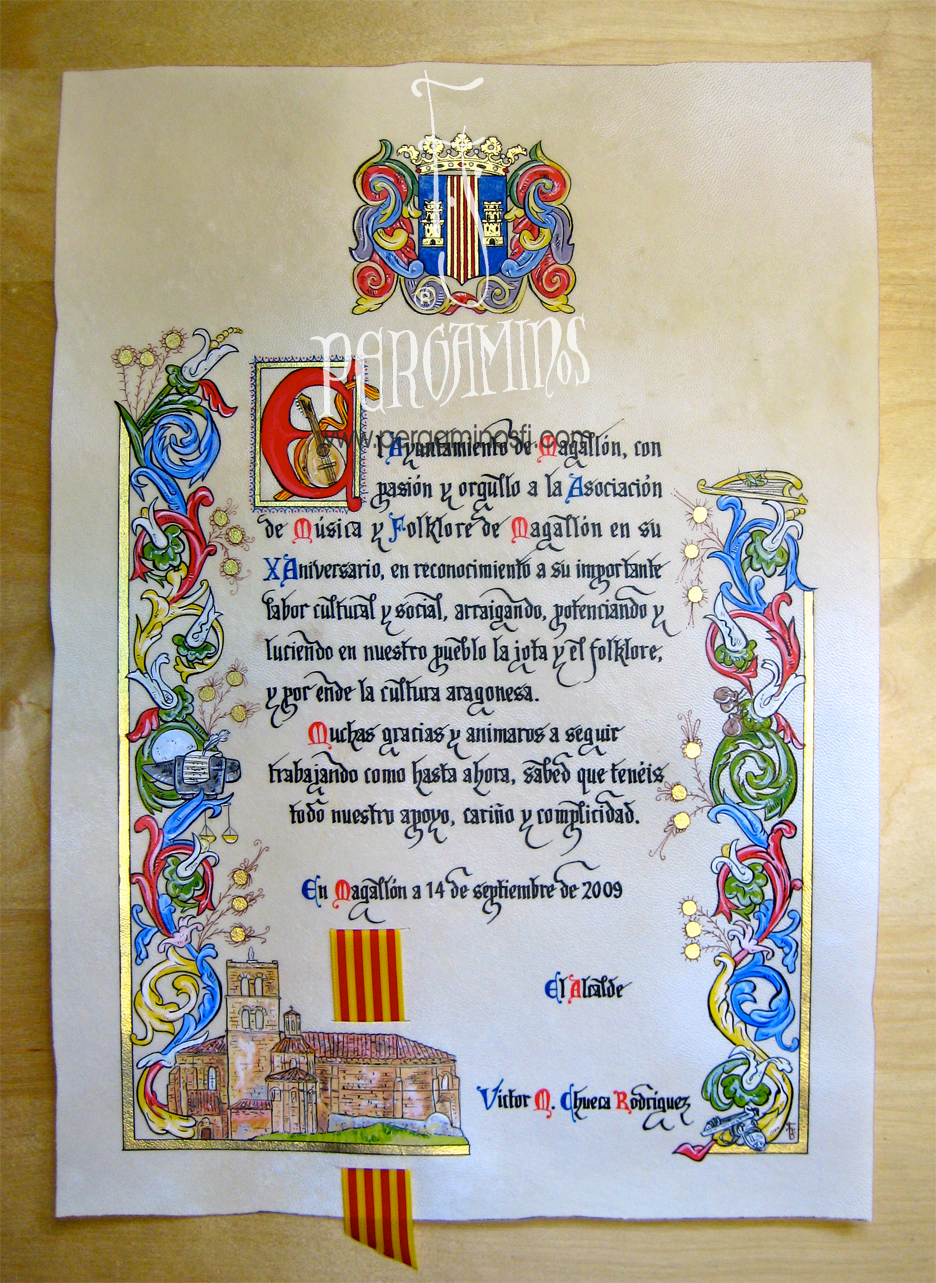 FJ
®
PERGAMINOS
www.pergaminosfj.com
El Ayuntamiento de Magallón, con
pasión y orgullo a la Asociación
de Música y Folklore de Magallón en su
X Aniversario, en reconocimiento a su importante
labor cultural y social, arraigando, potenciando y
luciendo en nuestro pueblo la jota y el folklore,
y por ende la cultura aragonesa.
Muchas gracias y animaros a seguir
trabajando como hasta ahora, sabed que tenéis
todo nuestro apoyo, cariño y complicidad.
En Magallón a 14 de septiembre de 2009
El Alcalde
Victor M. Chueca Rodriguez